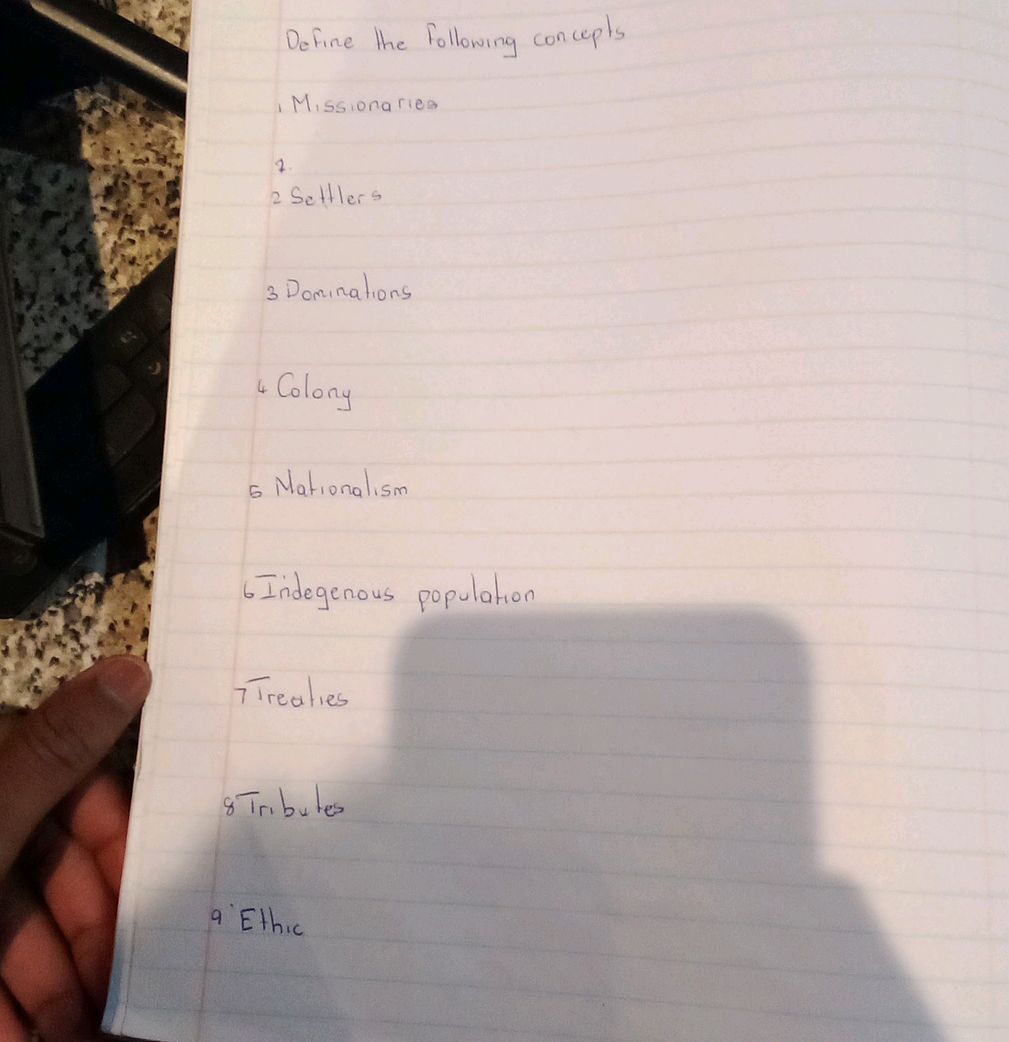 Define the following concepts
1 Missionaries
2.
2 Settlers
3 Dominations
4 Colony
5 Nationalism
6 Indegenous population
7 Treaties
8 Tributes
9 Ethic